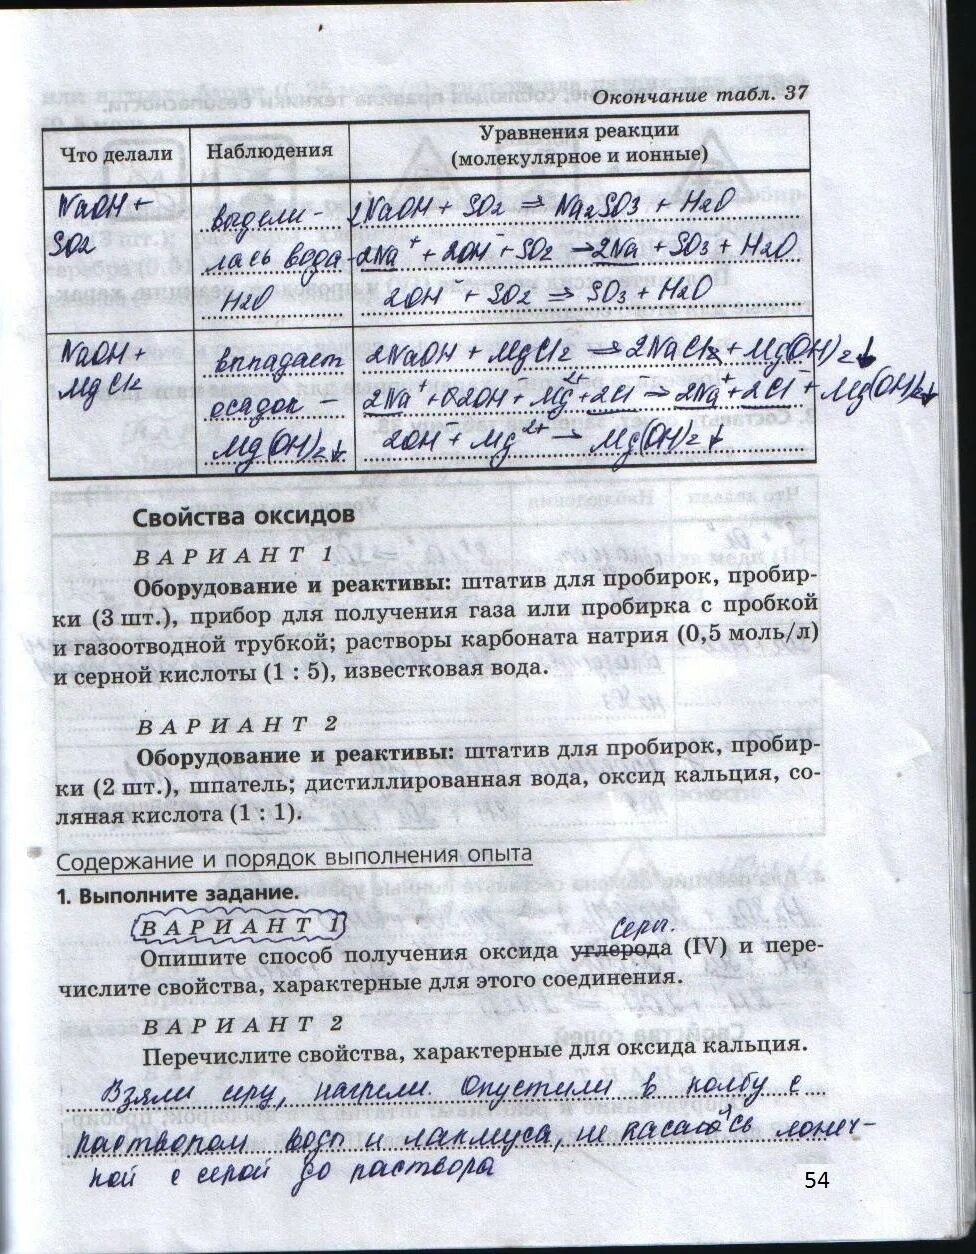 Окончание табл. 37
Что делали Наблюдения Уравнения реакции
(молекулярное и ионные)
NaOH + выдели- 2NaOH + SO2 ⇒ Na2SO3 + H2O
SO2 лась вода 2Na⁺ + 2OH⁻ + SO2 → 2Na + SO3 + H2O
H2O 2OH + SO2 ⇒ SO3 + H2O
NaOH + вппадает 2NaOH + MgCl2 ⇒ 2NaCl + Mg(OH)2↓
MgCl2 осадок – 2Na⁺ + 2OH + Mg²⁺ + 2Cl⁻ → 2Na⁺ + 2Cl⁻ + Mg(OH)2↓
Mg(OH)2↓ 2OH + Mg²⁺ → Mg(OH)2↓
Свойства оксидов
ВАРИАНТ 1
Оборудование и реактивы: штатив для пробирок, пробир-
ки (3 шт.), прибор для получения газа или пробирка с пробкой
и газоотводной трубкой; растворы карбоната натрия (0,5 моль/л)
и серной кислоты (1 : 5), известковая вода.
ВАРИАНТ 2
Оборудование и реактивы: штатив для пробирок, пробир-
ки (2 шт.), шпатель; дистиллированная вода, оксид кальция, со-
ляная кислота (1 : 1).
Содержание и порядок выполнения опыта
1. Выполните задание.
ВАРИАНТ 1
серы.
Опишите способ получения оксида углерода (IV) и пере-
числите свойства, характерные для этого соединения.
ВАРИАНТ 2
Перечислите свойства, характерные для оксида кальция.
Взяли серу, нагрели. Опустили в колбу с
раствором воды и лакмуса, не касаясь ложеч-
кой с серой до раствора
54